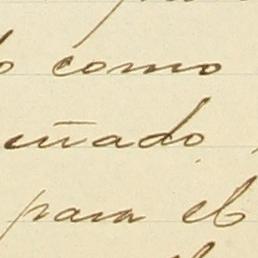 o como
eñado
para el